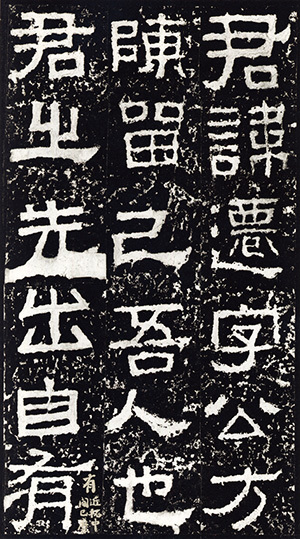 君諱遷字公方
陳留己吾人也
君之先出自有
有
近拓中